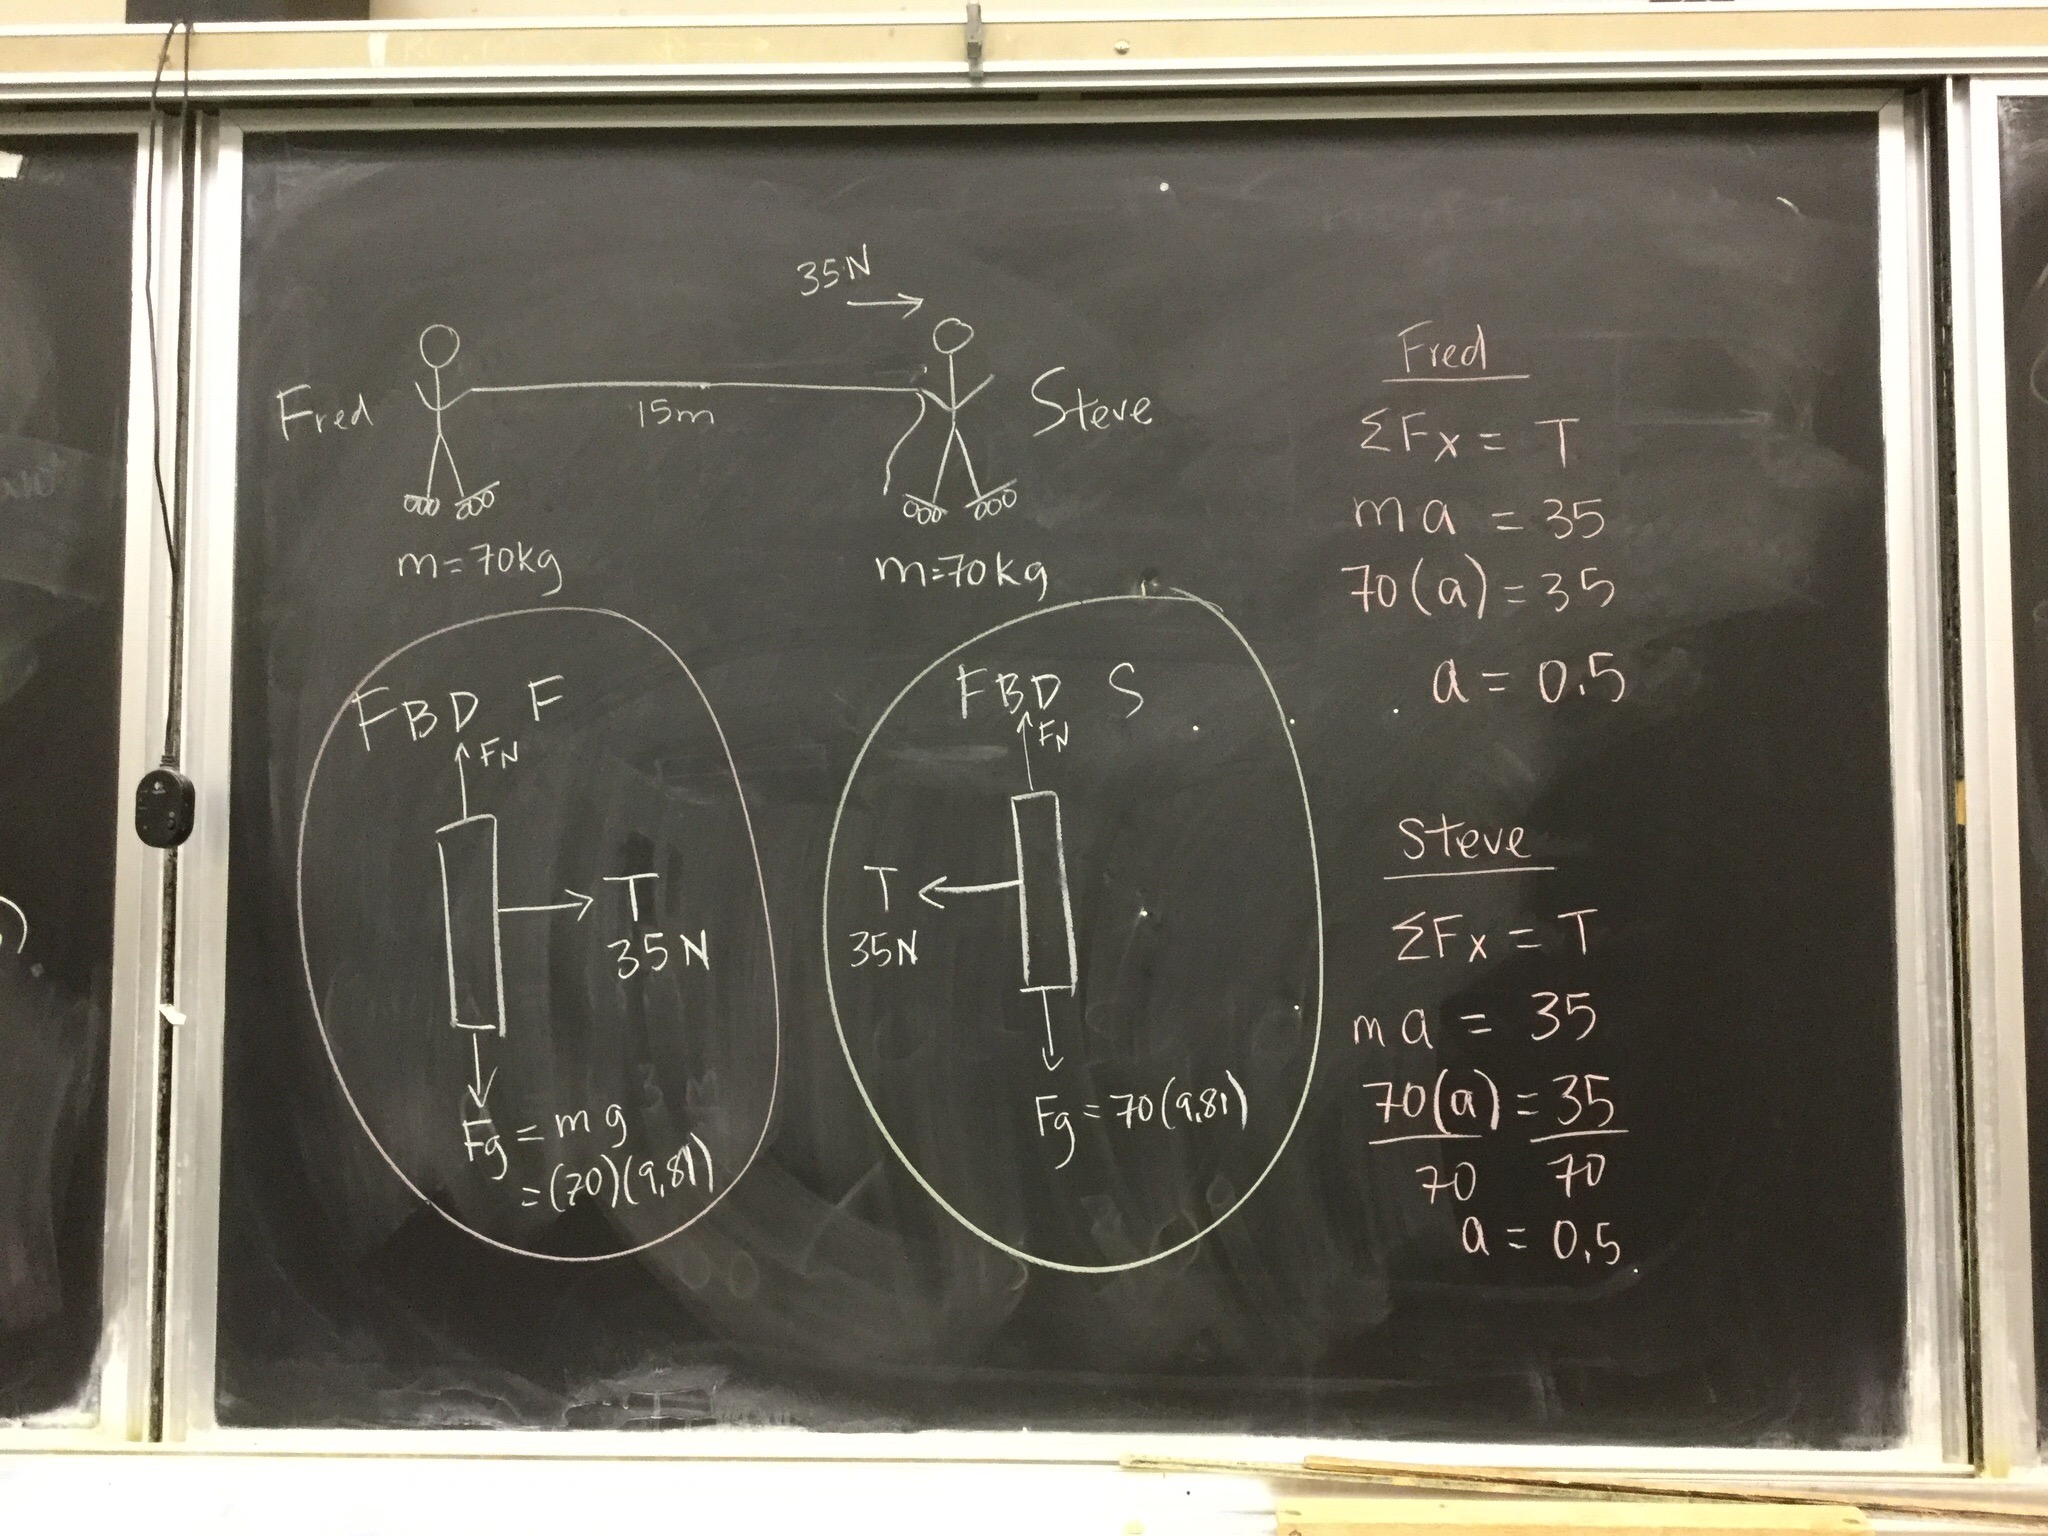 35N
Fred
15m
Steve
m=70kg
m=70kg
FBD F
FN
T
35N
Fg = mg
=(70)(9.81)
FBD S
FN
T
35N
Fg = 70(9.81)
Fred
ΣFx = T
ma = 35
70(a) = 35
a = 0.5
Steve
ΣFx = T
ma = 35
70(a) = 35
70 70
a = 0.5